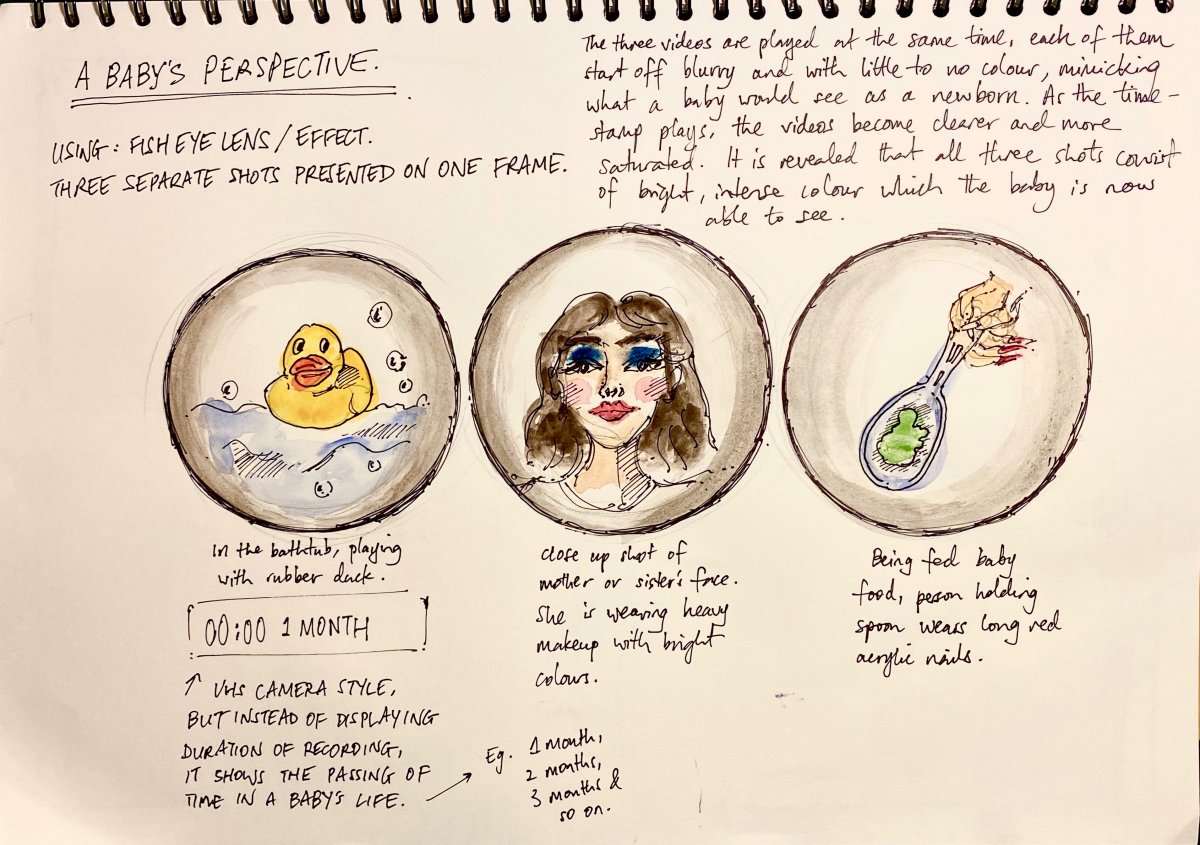 A BABY'S PERSPECTIVE.
USING: FISH EYE LENS / EFFECT.
THREE SEPARATE SHOTS PRESENTED ON ONE FRAME.
The three videos are played at the same time, each of them
start off blurry and with little to no colour, mimicking
what a baby would see as a newborn. As the time-
stamp plays, the videos become clearer and more
saturated. It is revealed that all three shots consist
of bright, intense colour which the baby is now
able to see.
In the bathtub, playing
with rubber duck.
00:00 1 MONTH
↑ VHS CAMERA STYLE,
BUT INSTEAD OF DISPLAYING
DURATION OF RECORDING,
IT SHOWS THE PASSING OF
TIME IN A BABY'S LIFE. →
Eg. 1 month,
2 months,
3 months &
so on.
Close up shot of
mother or sister's face.
She is wearing heavy
makeup with bright
colours.
Being fed baby
food, person holding
spoon wears long red
acrylic nails.